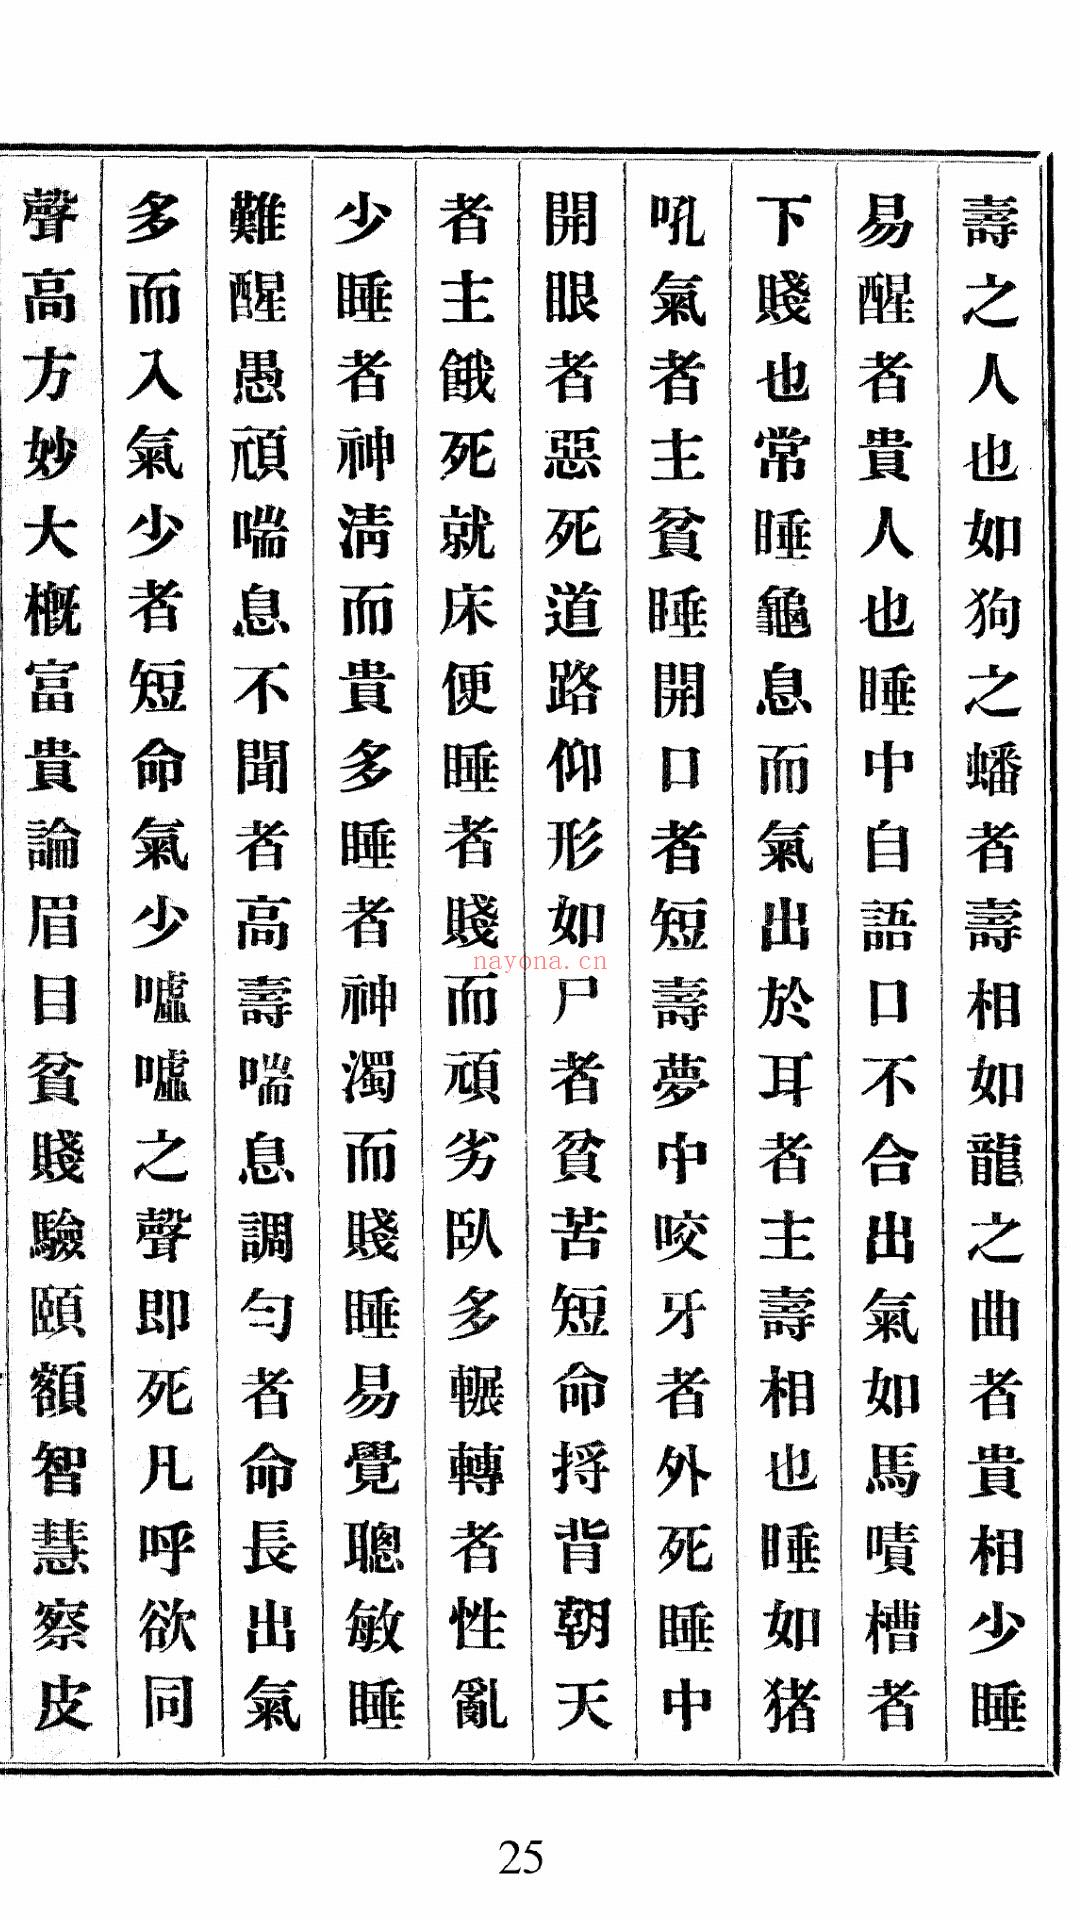 壽之人也如狗之蟠者壽相如龍之曲者貴相少睡
易醒者貴人也睡中自語口不合出氣如馬嘖槽者
下賤也常睡龜息而氣出於耳者主壽相也睡如猪
吼氣者主貧睡開口者短壽夢中咬牙者外死睡中
開眼者惡死道路仰形如尸者貧苦短命捋背朝天
者主餓死就床便睡者賤而頑劣臥多輾轉者性亂
少睡者神清而貴多睡者神濁而賤睡易覺聰敏睡
難醒愚頑喘息不聞者高壽喘息調勻者命長出氣
多而入氣少者短命氣少噓噓之聲即死凡呼欲同
聲高方妙大概富貴論眉目貧賤驗頤額智慧察皮
nayona.cn
25